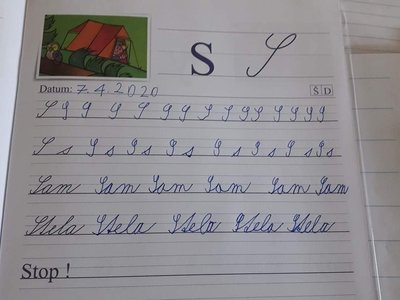 S S
Datum: 7.4.2020 Š D
S S S S S S S S S S S S S S S S
S s S s S s S s S s S s S s S s S s
Sam Sam Sam Sam Sam Sam
Stela Stela Stela Stela Stela
Stop !